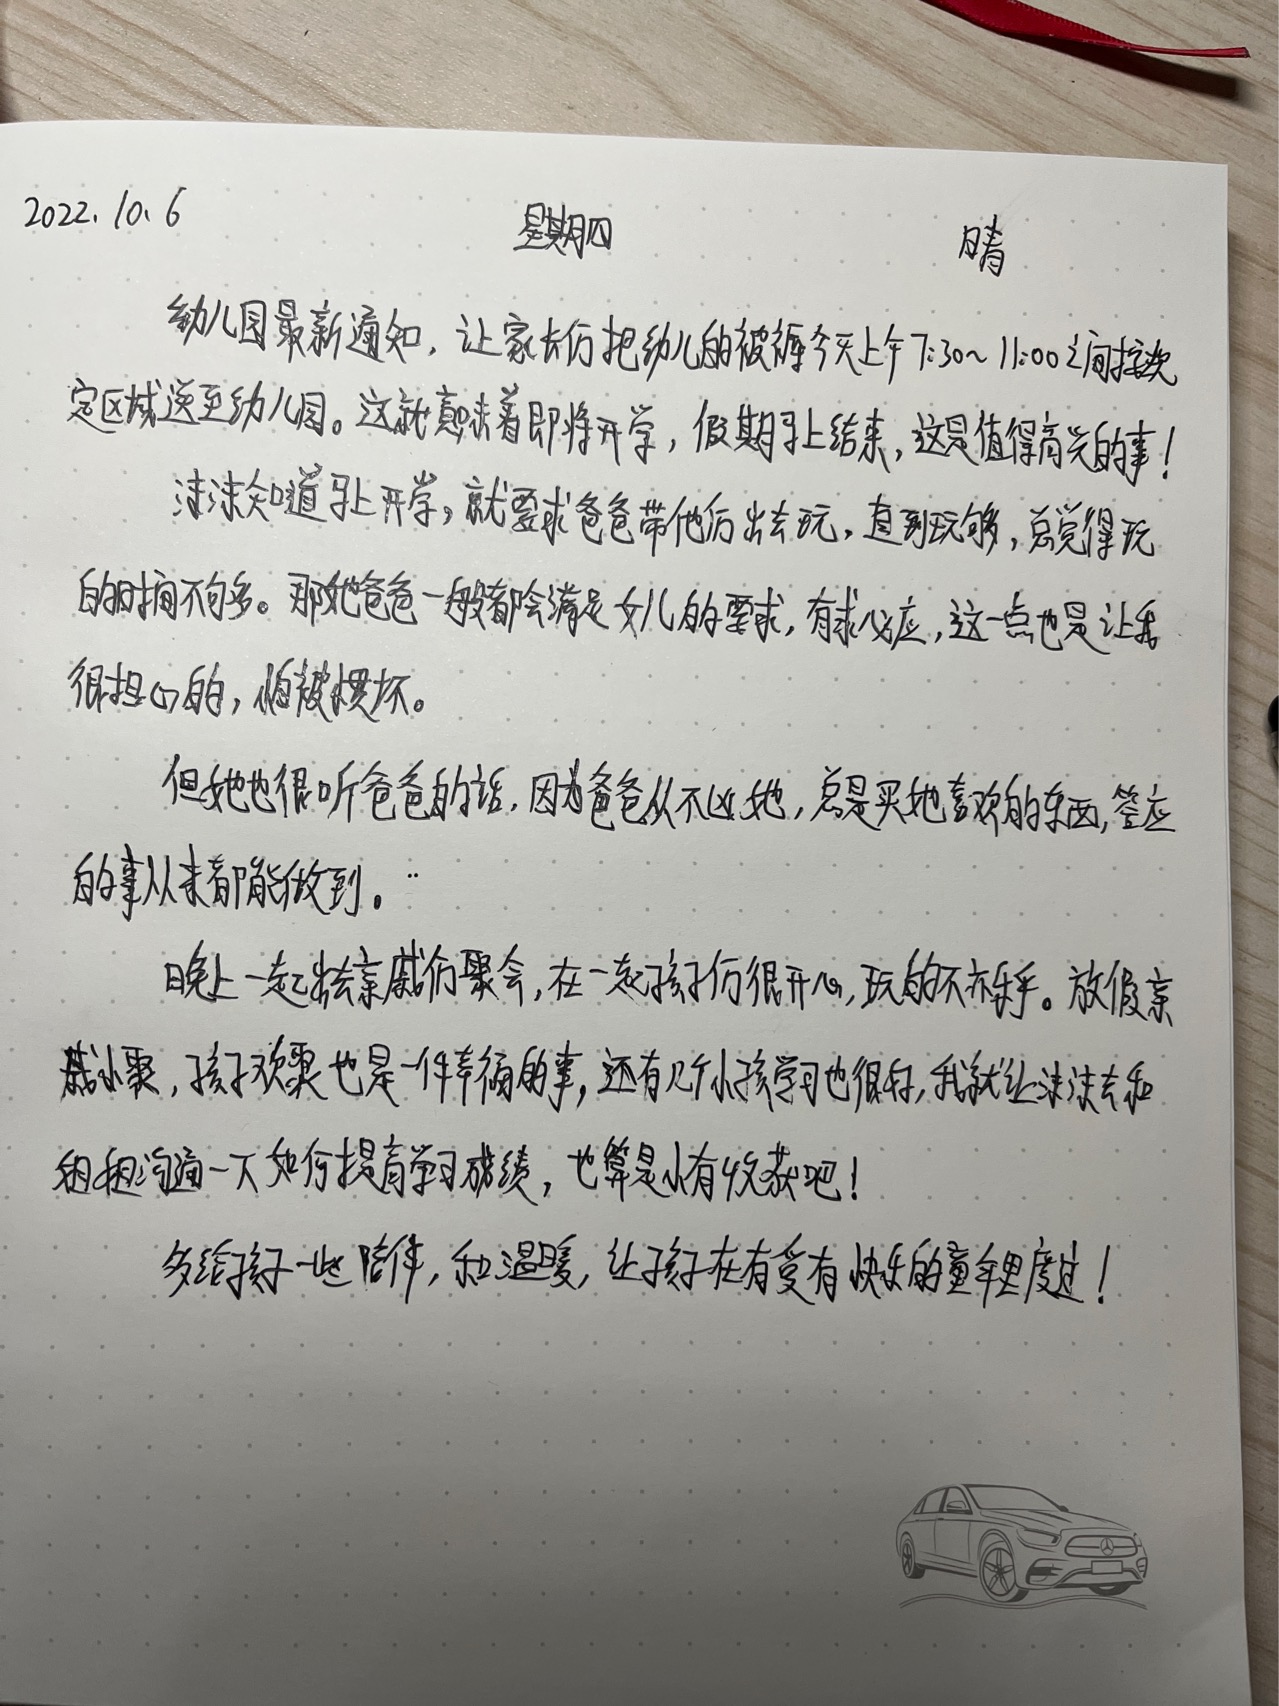 2022.10.6 星期四 晴
幼儿园最新通知，让家长们把幼儿的被褥今天上午7:30～11:00之间按次
定区域送至幼儿园。这就意味着即将开学，假期马上结束，这是值得高兴的事！
沫沫知道马上开学，就要求爸爸带他们出去玩，直到玩够，总觉得玩
的时间不够多。那她爸爸一般都会满足女儿的要求，有求必应，这一点也是让我
很担心的，怕被惯坏。
但她也很听爸爸的话，因为爸爸从不凶她，总是买她喜欢的东西，答应
的事从来都能做到。
晚上一起出去亲戚们聚会，在一起孩子们很开心，玩的不亦乐乎。放假亲
戚小聚，孩子欢聚也是一件幸福的事，还有几个小孩学习也很好，我就让沫沫去和
姐姐沟通一下如何提高学习成绩，也算是小有收获吧！
多给孩子一些陪伴，和温暖，让孩子在有爱有快乐的童年里度过！